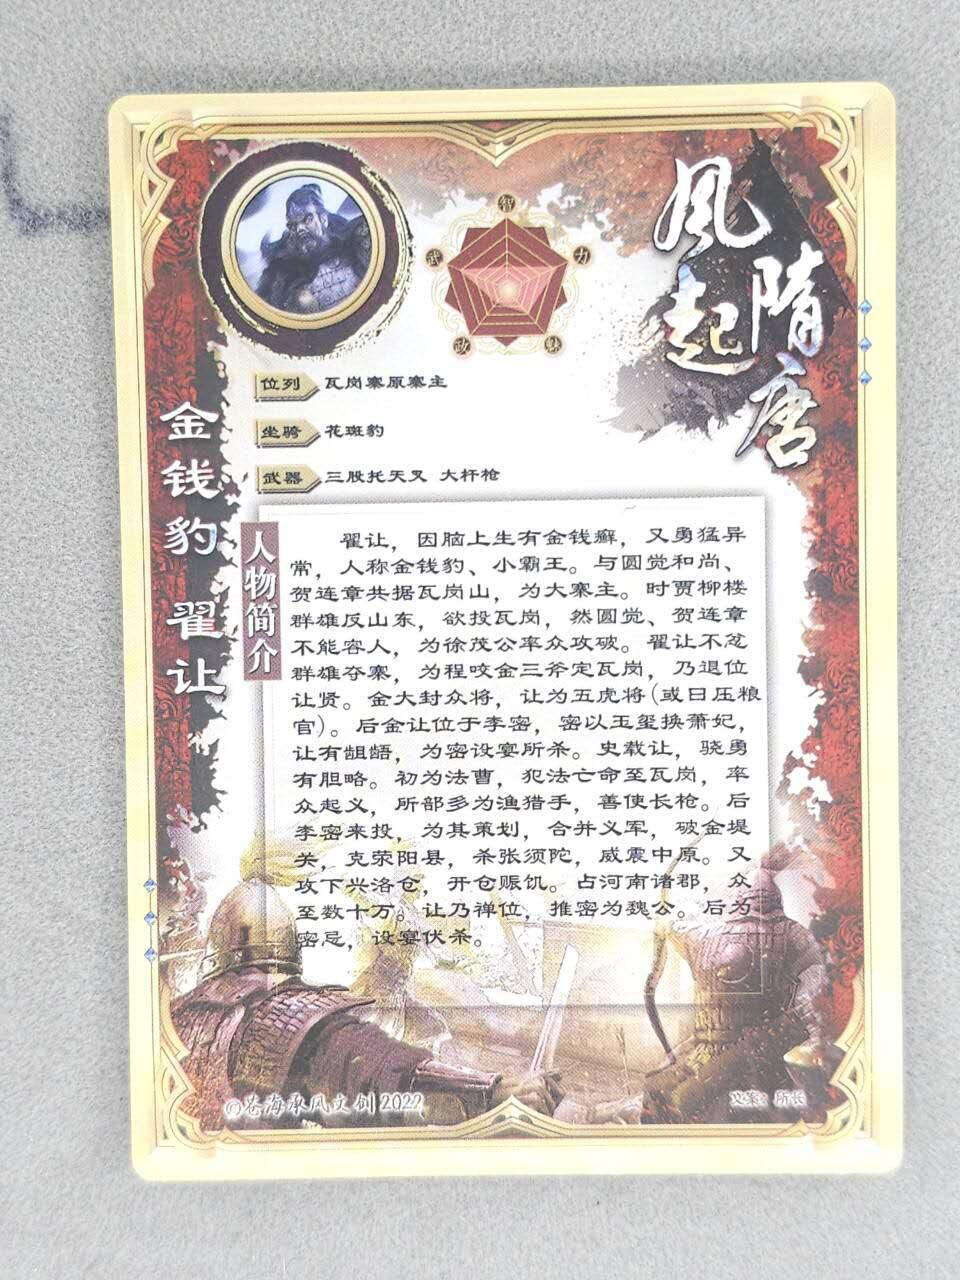 風起
隋唐
智
武
力
政
魅
位列 瓦岗寨原寨主
坐骑 花斑豹
武器 三股托天叉 大杆枪
金钱豹 翟让
人物简介
翟让，因脑上生有金钱癣，又勇猛异
常，人称金钱豹、小霸王。与圆觉和尚、
贺连章共据瓦岗山，为大寨主。时贾柳楼
群雄反山东，欲投瓦岗，然圆觉、贺连章
不能容人，为徐茂公率众攻破。翟让不忿
群雄夺寨，为程咬金三斧定瓦岗，乃退位
让贤。金大封众将，让为五虎将（或曰压粮
官）。后金让位于李密，密以玉玺换萧妃，
让有龃龉，为密设宴所杀。史载让，骁勇
有胆略。初为法曹，犯法亡命至瓦岗，率
众起义，所部多为渔猎手，善使长枪。后
李密来投，为其策划，合并义军，破金堤
关，克荥阳县，杀张须陀，威震中原。又
攻下兴洛仓，开仓赈饥。占河南诸郡，众
至数十万。让乃禅位，推密为魏公。后为
密忌，设宴伏杀。
©苍海承风文创 2022
文案：所长